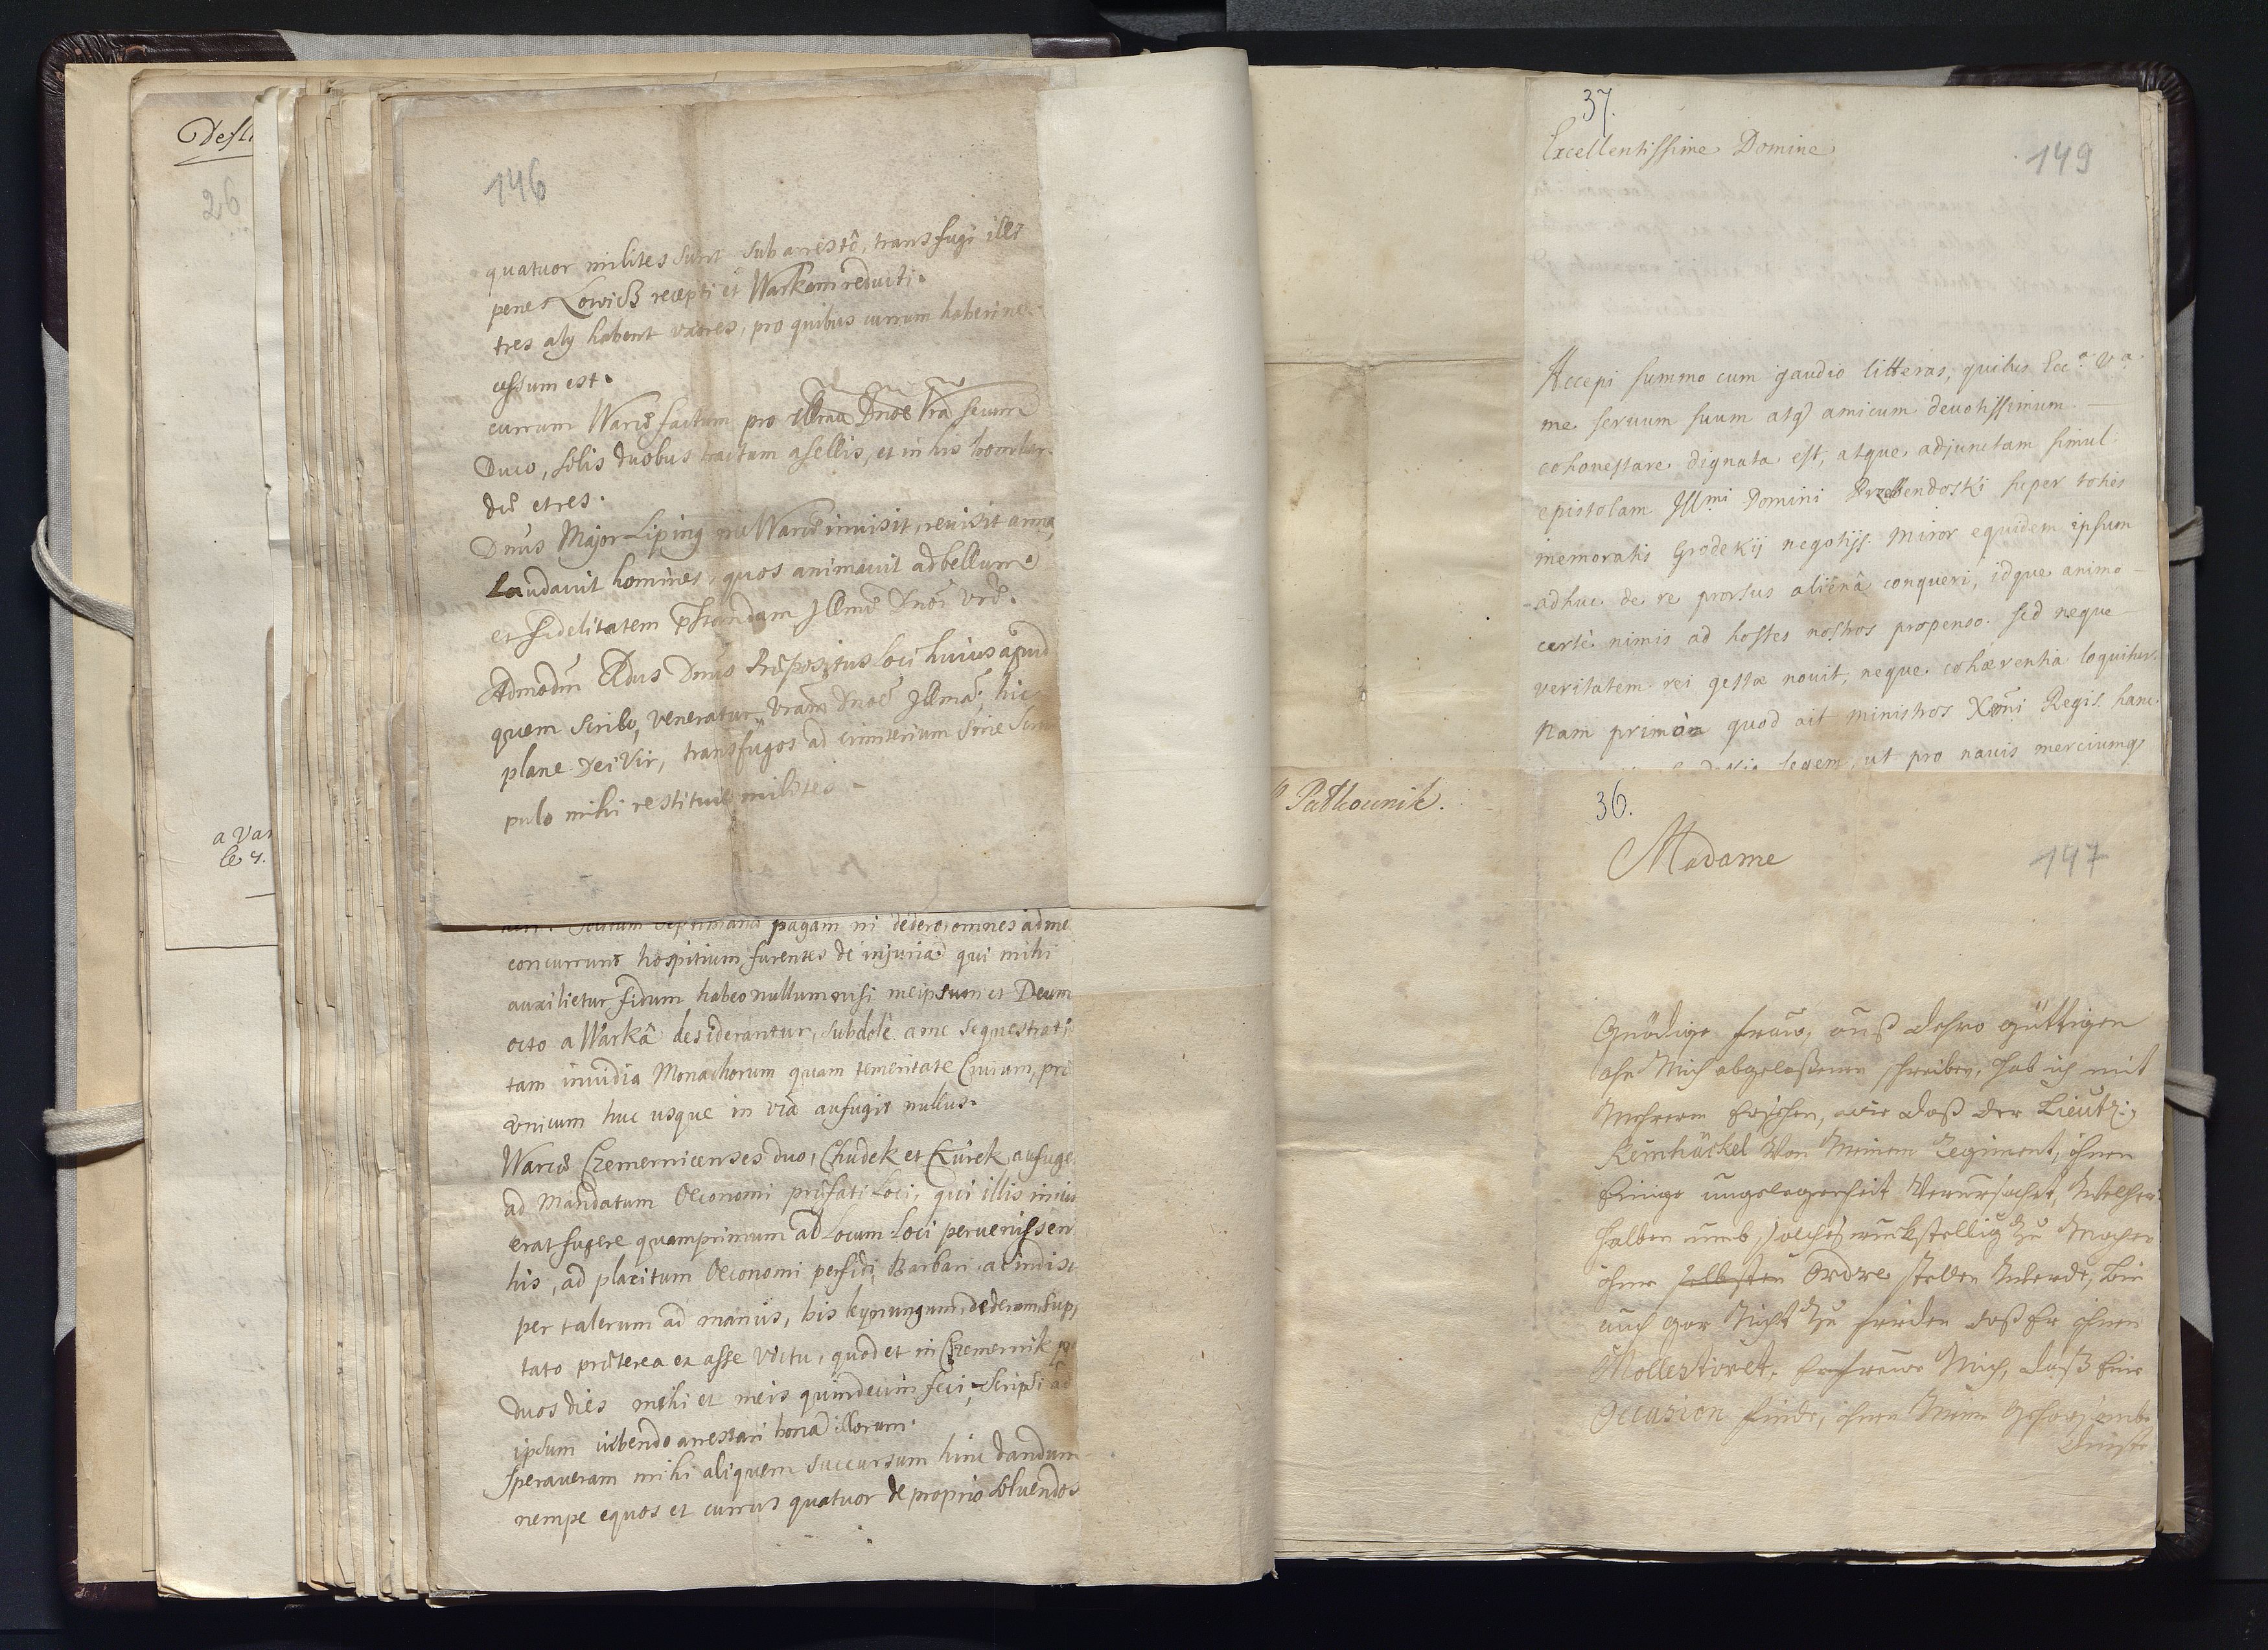 Dess
26
a Var
le 4.
146
quatuor milites sunt sub arrestô, transfugi illi
penes Lowicß recepti et Warkam reducti.
tres alÿ habent uxores, pro quibus currum haberi ne-
cessum est.
currum factum pro Dnoe Vra
Duco, solis duobus tractum asellis, et in his
et res.
Dnus Major Liping invisit, revisit arma,
Laudavit homines, quos animavit ad bellum
et fidelitatem Jllmæ Dnoi
Admodm Rdus Dnus Præpositus loci huius apud
quem scribo, veneratur Vram Dnoe Jllma, hic
plane Dei Vir, transfugos ad cimiterium sine
pulo mihi restituit milites
septimana pagam ni dedero, omnes ad me
concurrunt hospitium, furentes de injuria qui mihi
auxilietur fidum habeo nullum nisi meipsum et Deum
octo a Warkâ desiderantur, subdole a me sequestrati
tam invidia Monachorum quam temeritate Civium, pr
unicum huc usque in via aufugit nullus.
Czemernicenses duo, Chudek et Kurek, aufuge
ad Mandatum Oeconomi præfati Loci, qui illis
erat fugere quamprimum ad Locum Loci pervenissen
his, ad placitum Oeconomi perfidi Barbari
per talerum ad manus, bis
tato præterea ex asse victu, quod et in Czemernik
duos dies mihi et meis quindecim feci, scripsi ad
ipsum iubendo arrestari bona illorum.
speraveram mihi aliquem succursum hinc dandum
nempe equos et currus quatuor de proprio solvendos
Patkounik.
37.
149
Excellentissime Domine
Accepi summo cum gaudio litteras, quibus Ecc.a V.a
me servum suum atq amicum devotissimum
cohonestare dignata est, atque adjunctam simul
epistolam Jllmi Domini Przebendoski super toties
memoratis Grodekij negotijs. Miror equidem ipsum
adhuc de re prorsus alienâ conqueri, idque animo
certè nimis ad hostes nostros propenso. sed neque
veritatem rei gestæ novit, neque cohærentia loquitur.
Nam primò quod ait ministros Regis hanc
legem, ut pro navis merciumq
36.
147
Madame
Gnädige fraw, auß dehro güttigen
ahn Mich abgelaßenen schreiben, hab ich mit
Mehrerm ersehen, wie daß der Lieutn:
Reinhäckel Von Meinem Regiment, ihnen
Einige ungelegenheit Verursachet, Welcher
halben umb solches rückstellig zu Machen
ihme selbsten Ordre stellen Werde, bin
auch gar Nicht zu frieden daß Er ihnen
Mollestiret. Erfrewe Mich, daß Eine
Occasion finde, ihnen Meine Gehorsambe
Dinste